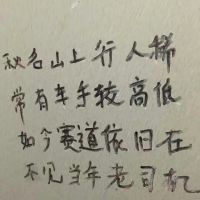 秋名山上行人稀
常有车手较高低
如今赛道依旧在
不见当年老司机